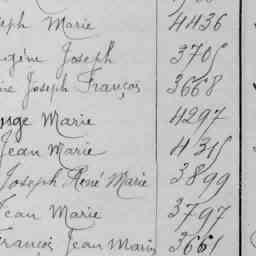 seph Marie 4436
ugène Joseph 3705
Joseph François 3668
Marie 4297
Jean Marie 4315
Joseph René Marie 3899
Jean Marie 3797
François Jean Marie 3661